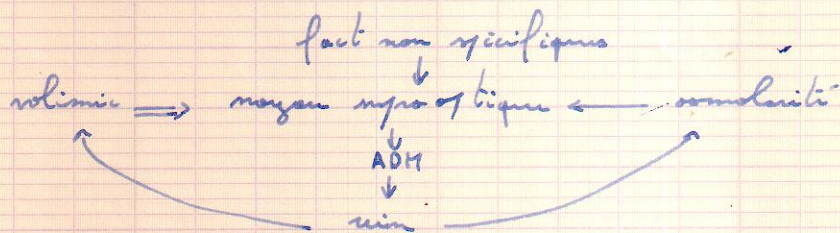 fact non spécifiques
volémie ⇒ noyau supra optique ← osmolarité
ADH
rein